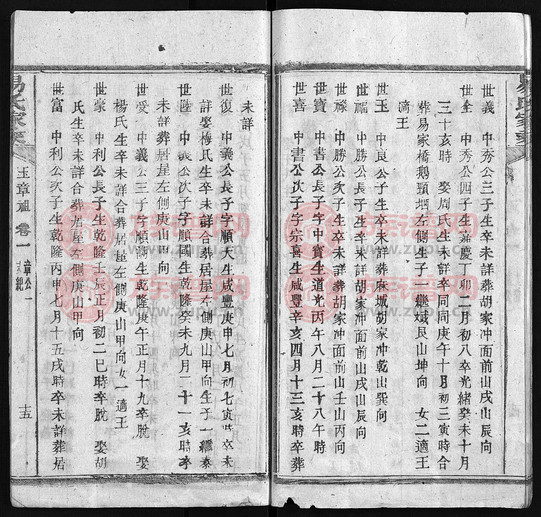 世義　中秀公三子生卒未詳葬胡家冲面前山戌山辰向
世全　中秀公四子生嘉慶丁卯二月初八卒光緒癸未十月
三十亥時　娶周氏生卒未詳同庚午十月初三寅時合
葬易家橋鵝頸坵左側生子一繼斌艮山坤向　女二適王
適王
世玉　中良公子生卒未詳葬麻城胡家冲乾山巽向
世福　中勝公長子生卒未詳葬胡家冲面前山戌山辰向
世祿　中勝公次子生卒未詳葬胡家冲面前山壬山丙向
世寶　中書公長子字中寶生道光丙午八月二十八午時
世喜　中書公次子字宗喜生咸豐辛亥四月十三亥時卒葬
未詳
世復　中義公長子字順天生咸豐庚申七月初七寅時卒未
詳娶梅氏生卒未詳合葬居屋左側庚山甲向生子一繼泰
世　中義公次子字順國生乾隆癸未九月二十一亥時卒
未詳葬居屋左側庚山甲向
世愛　中義公三子字　生乾隆庚午正月十九卒脫　娶
楊氏生卒未詳合葬居屋左側庚山甲向女一適王
世豪　中利公長子生乾隆壬辰正月初二巳時卒脫　娶胡
氏生卒未詳合葬居屋左側庚山甲向
世富　中利公次子生乾隆丙申七月十五戌時卒未詳葬居
易氏家乘
玉章祖　卷一
章公一
十五